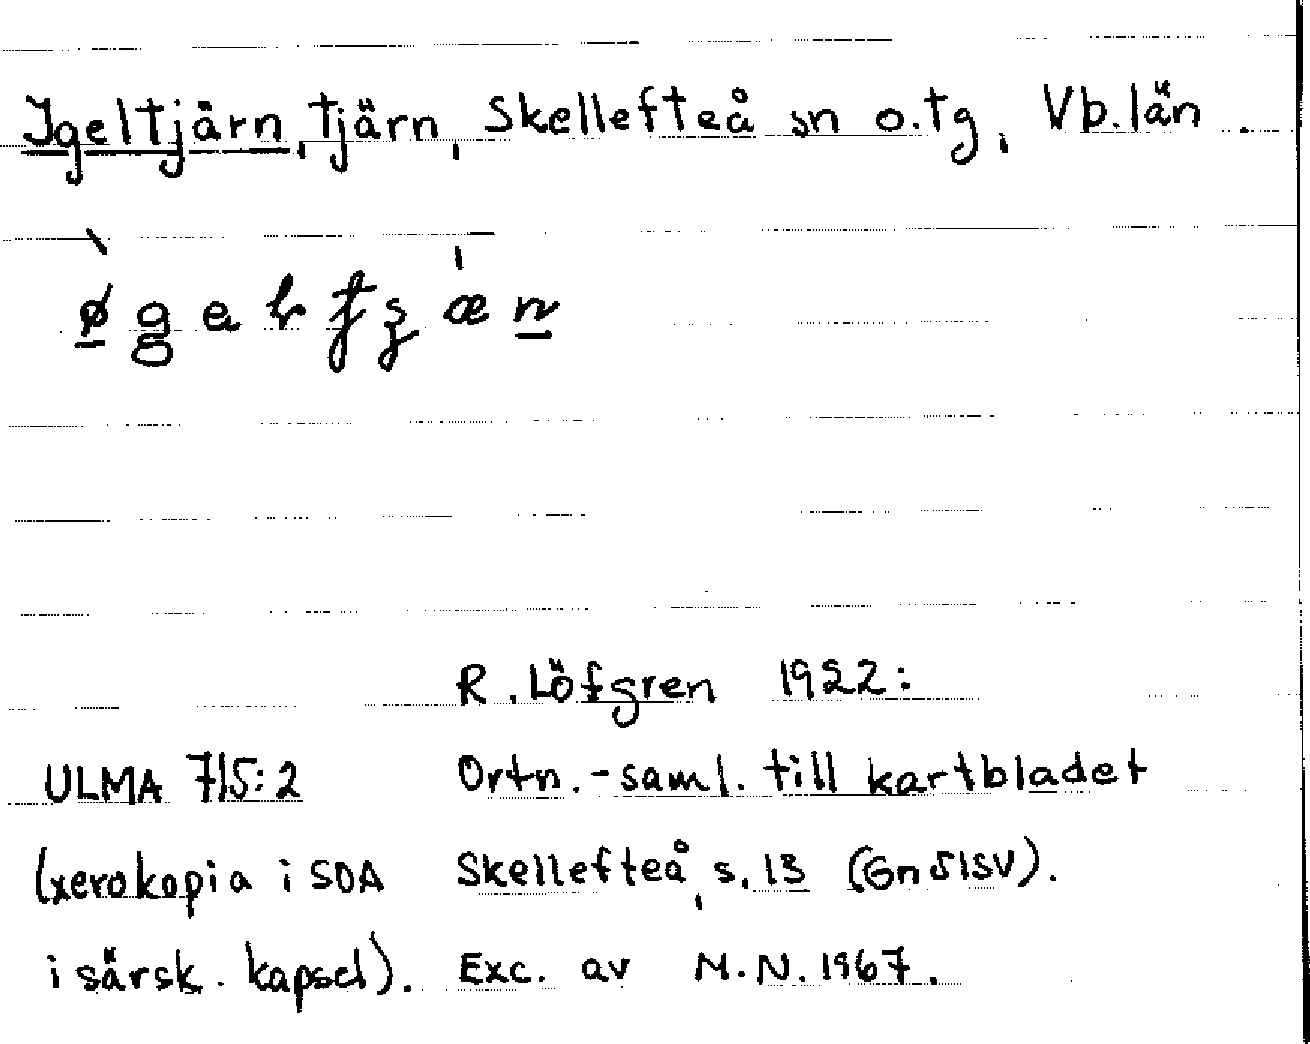 Igeltjärn, tjärn, Skellefteå sn o.tg, Vb.län.
R. Löfgren 1922:
ULMA 715:2 Ortn.-saml. till kartbladet
(xerokopia i SOA Skellefteå, s. 13 (Gn S1SV).
i särsk. kapsel). Exc. av M.N. 1967.